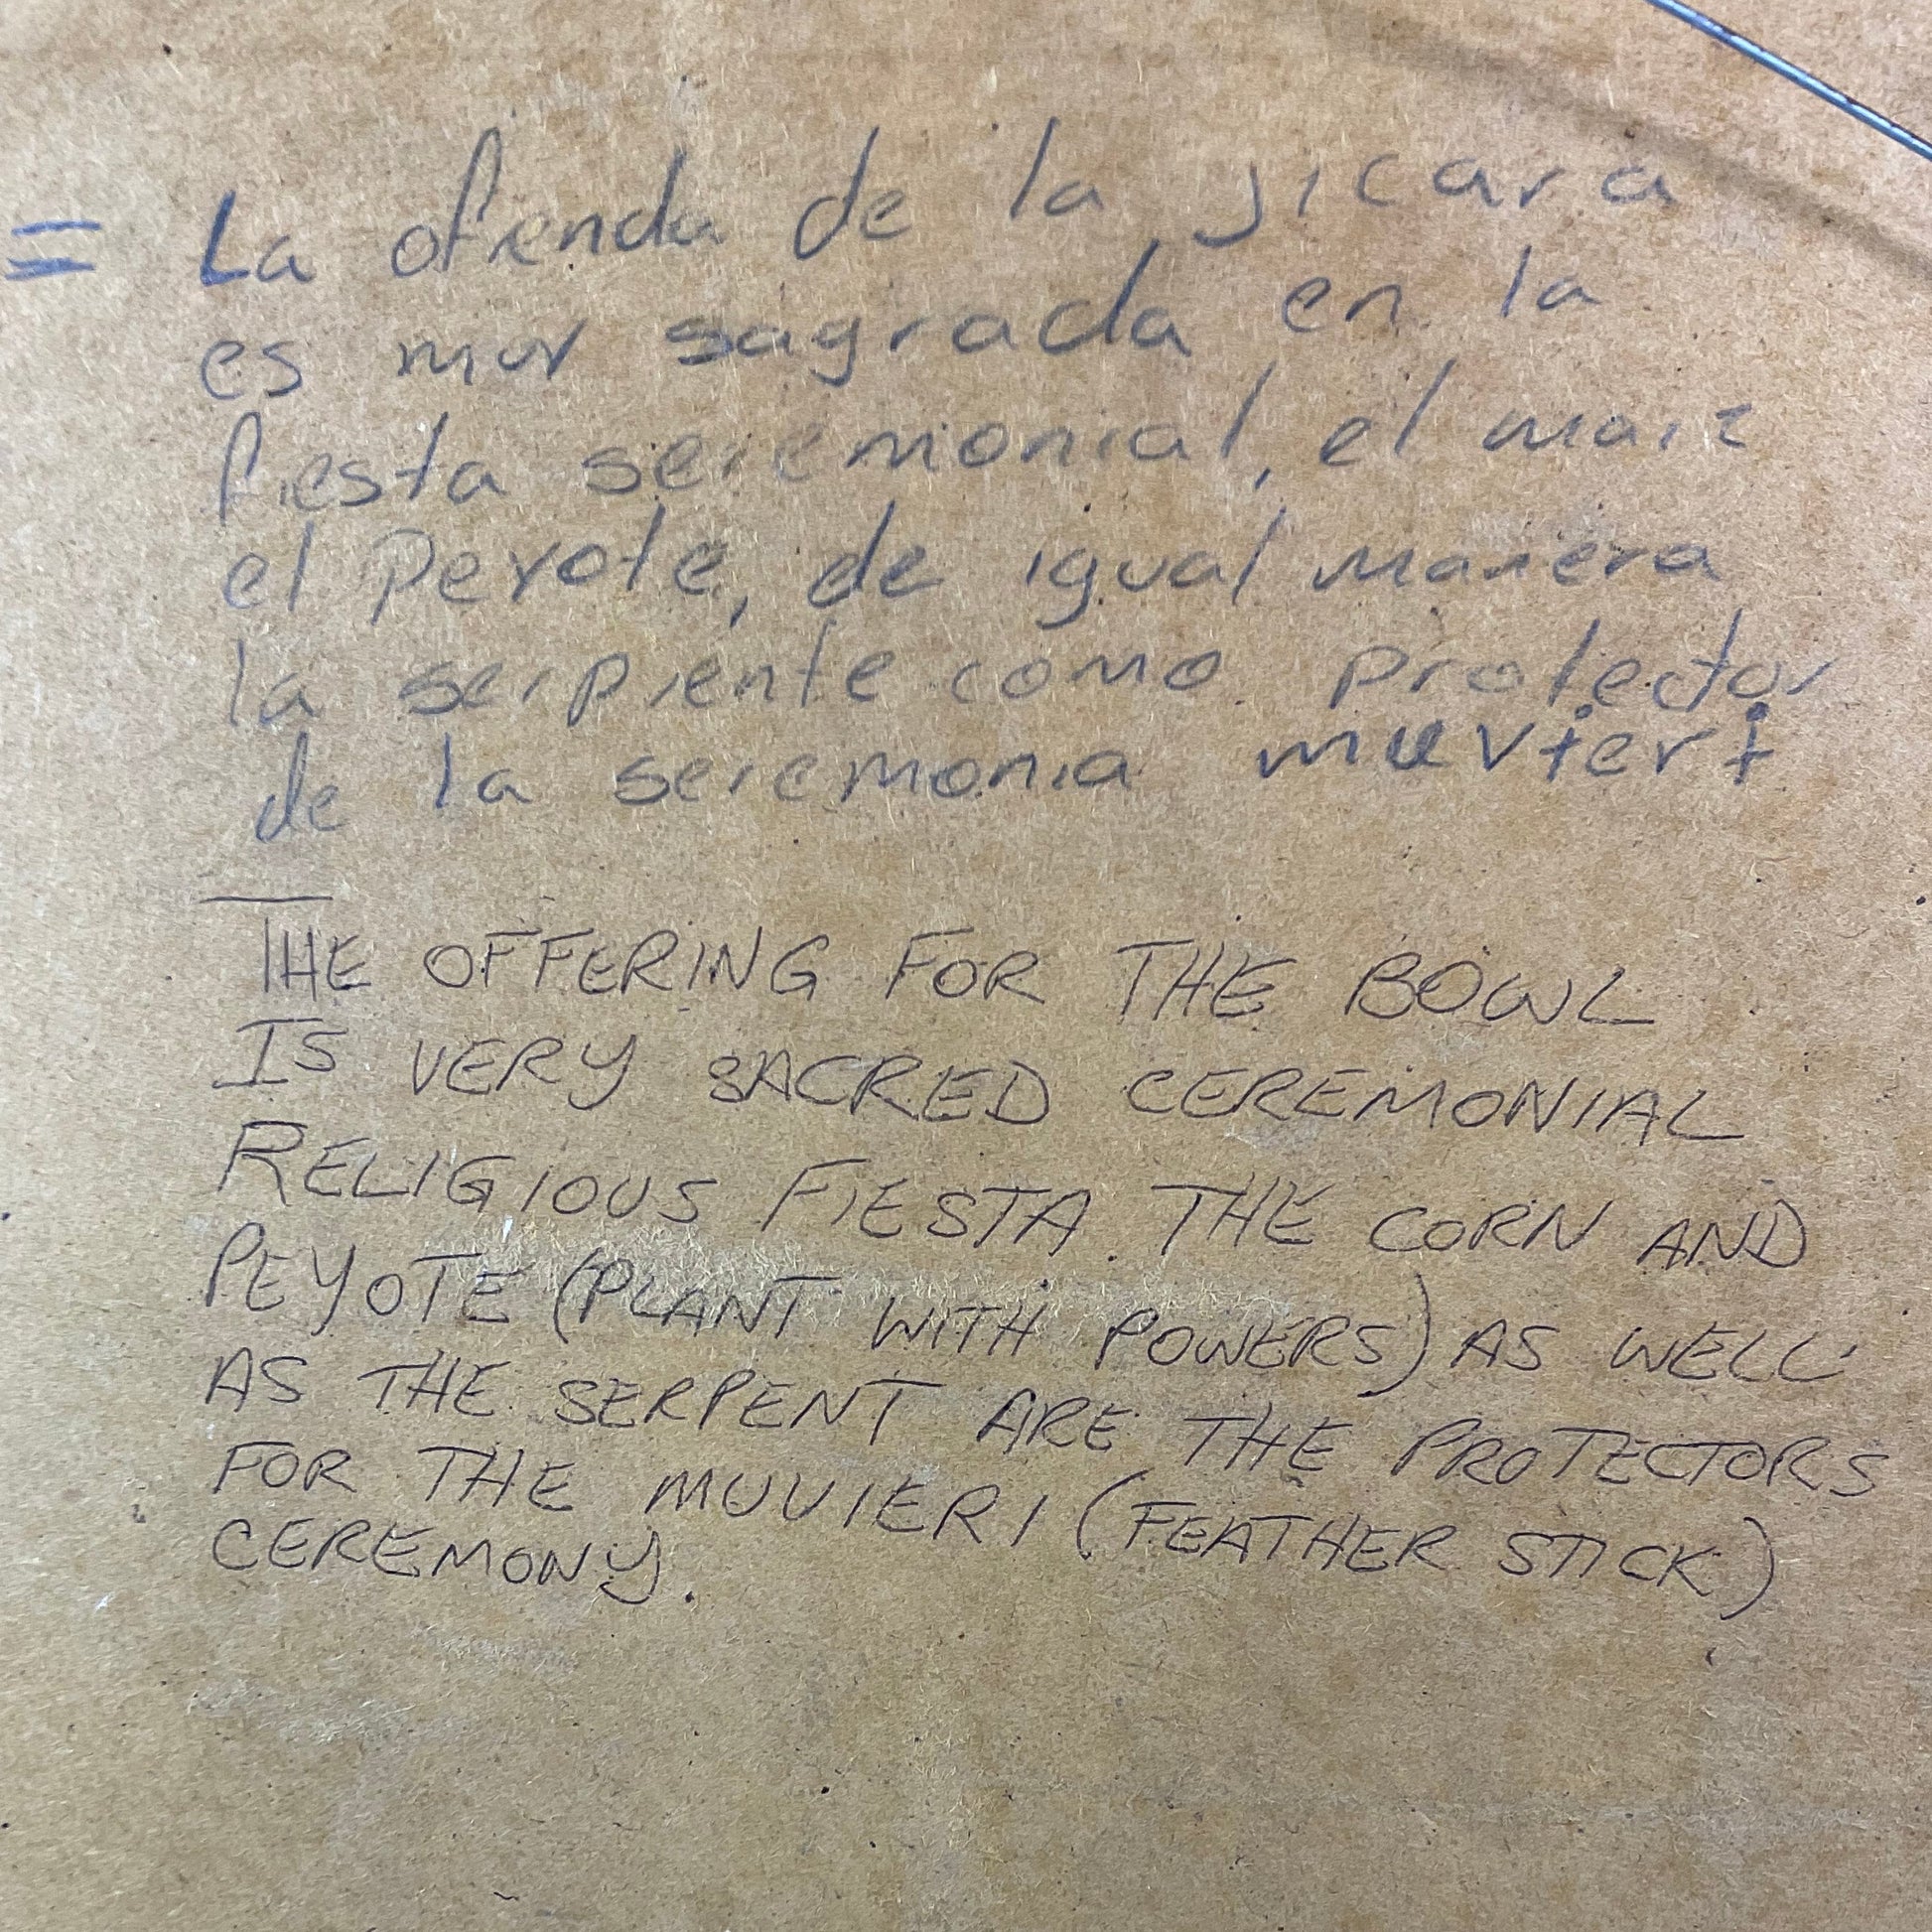 = La ofrenda de la jicara
es muy sagrada en la
fiesta seremonial, el maiz
el Peyote, de igual manera
la serpiente como protector
de la seremonia muvieri
THE OFFERING FOR THE BOWL
IS VERY SACRED CEREMONIAL
RELIGIOUS FIESTA. THE CORN AND
PEYOTE (PLANT WITH POWERS) AS WELL
AS THE SERPENT ARE THE PROTECTORS
FOR THE MUUIERI (FEATHER STICK)
CEREMONY.